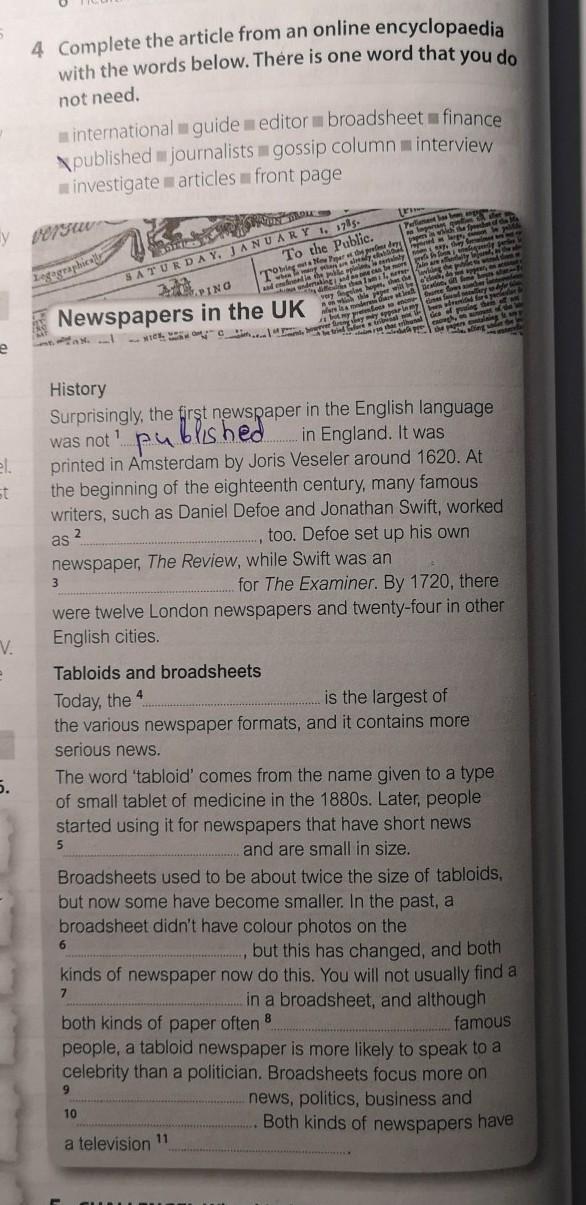 4 Complete the article from an online encyclopaedia
with the words below. There is one word that you do
not need.
international guide editor broadsheet finance
published journalists gossip column interview
investigate articles front page
Logographically
SATURDAY, JANUARY 1, 1785.
To the Public.
Newspapers in the UK
History
Surprisingly, the first newspaper in the English language
was not 1 published in England. It was
printed in Amsterdam by Joris Veseler around 1620. At
the beginning of the eighteenth century, many famous
writers, such as Daniel Defoe and Jonathan Swift, worked
as 2 , too. Defoe set up his own
newspaper, The Review, while Swift was an
3 for The Examiner. By 1720, there
were twelve London newspapers and twenty-four in other
English cities.
Tabloids and broadsheets
Today, the 4 is the largest of
the various newspaper formats, and it contains more
serious news.
The word 'tabloid' comes from the name given to a type
of small tablet of medicine in the 1880s. Later, people
started using it for newspapers that have short news
5 and are small in size.
Broadsheets used to be about twice the size of tabloids,
but now some have become smaller. In the past, a
broadsheet didn't have colour photos on the
6 , but this has changed, and both
kinds of newspaper now do this. You will not usually find a
7 in a broadsheet, and although
both kinds of paper often 8 famous
people, a tabloid newspaper is more likely to speak to a
celebrity than a politician. Broadsheets focus more on
9 news, politics, business and
10 . Both kinds of newspapers have
a television 11 .